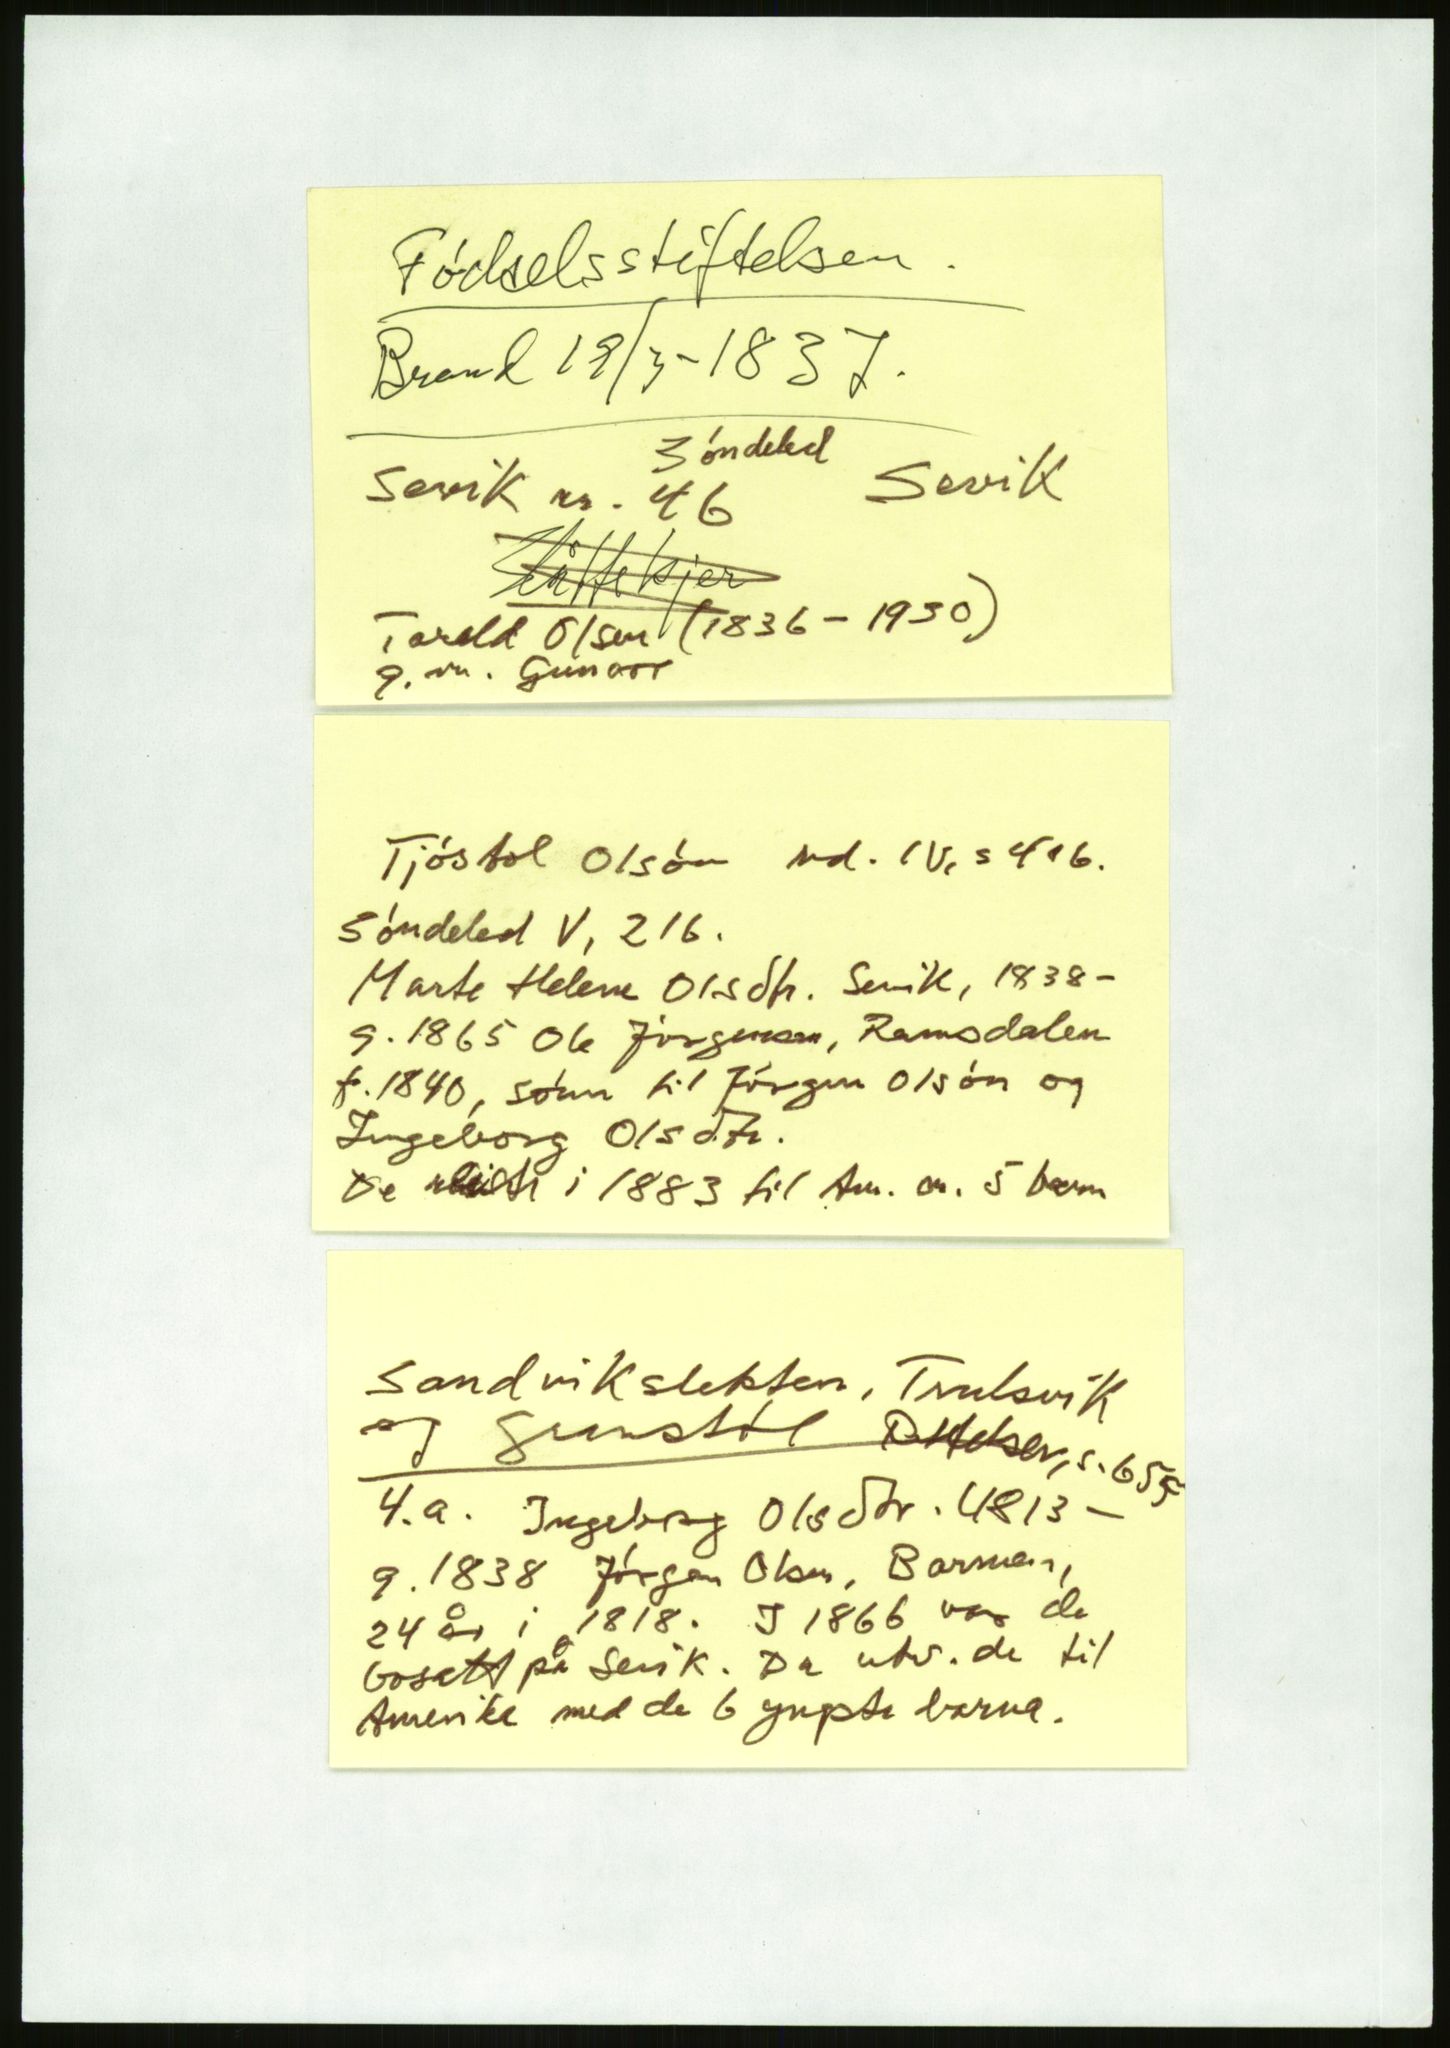 Fódselsstiftelsen.
Brand 19/3-1837.
Sóndeled
Sevik nr. 46 Sevik
Tarald Olsen (1836-1930)
g. m. Gunvor
Tjóstol Olsón nd. IV, s 416.
Sóndeled V, 216.
Marte Helene Olsdtr. Sevik, 1838-
g. 1865 Ole Jórgensen, Ramsdalen
f. 1840, sónn til Jórgen Olsón og
Ingeborg Olsdtr.
De reiste i 1883 til Am. m. 5 barn
Sandvikslekten, Trulsvik
og Grunstól, s. 655
4.a. Ingeborg Olsdtr. 4813-
g. 1838 Jórgen Olsen, Barmen,
24 år i 1818. I 1866 var de
bosatt på Sevik. Da utv. de til
Amerika med de 6 yngste barna.